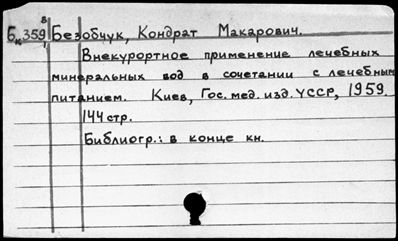 Бк359в Безобчук, Кондрат Макарович.
Внекурортное применение лечебных
минеральных вод в сочетании с лечебным
питанием. Киев, Гос. мед. изд. УССР, 1959.
144 стр.
Библиогр.: в конце кн.